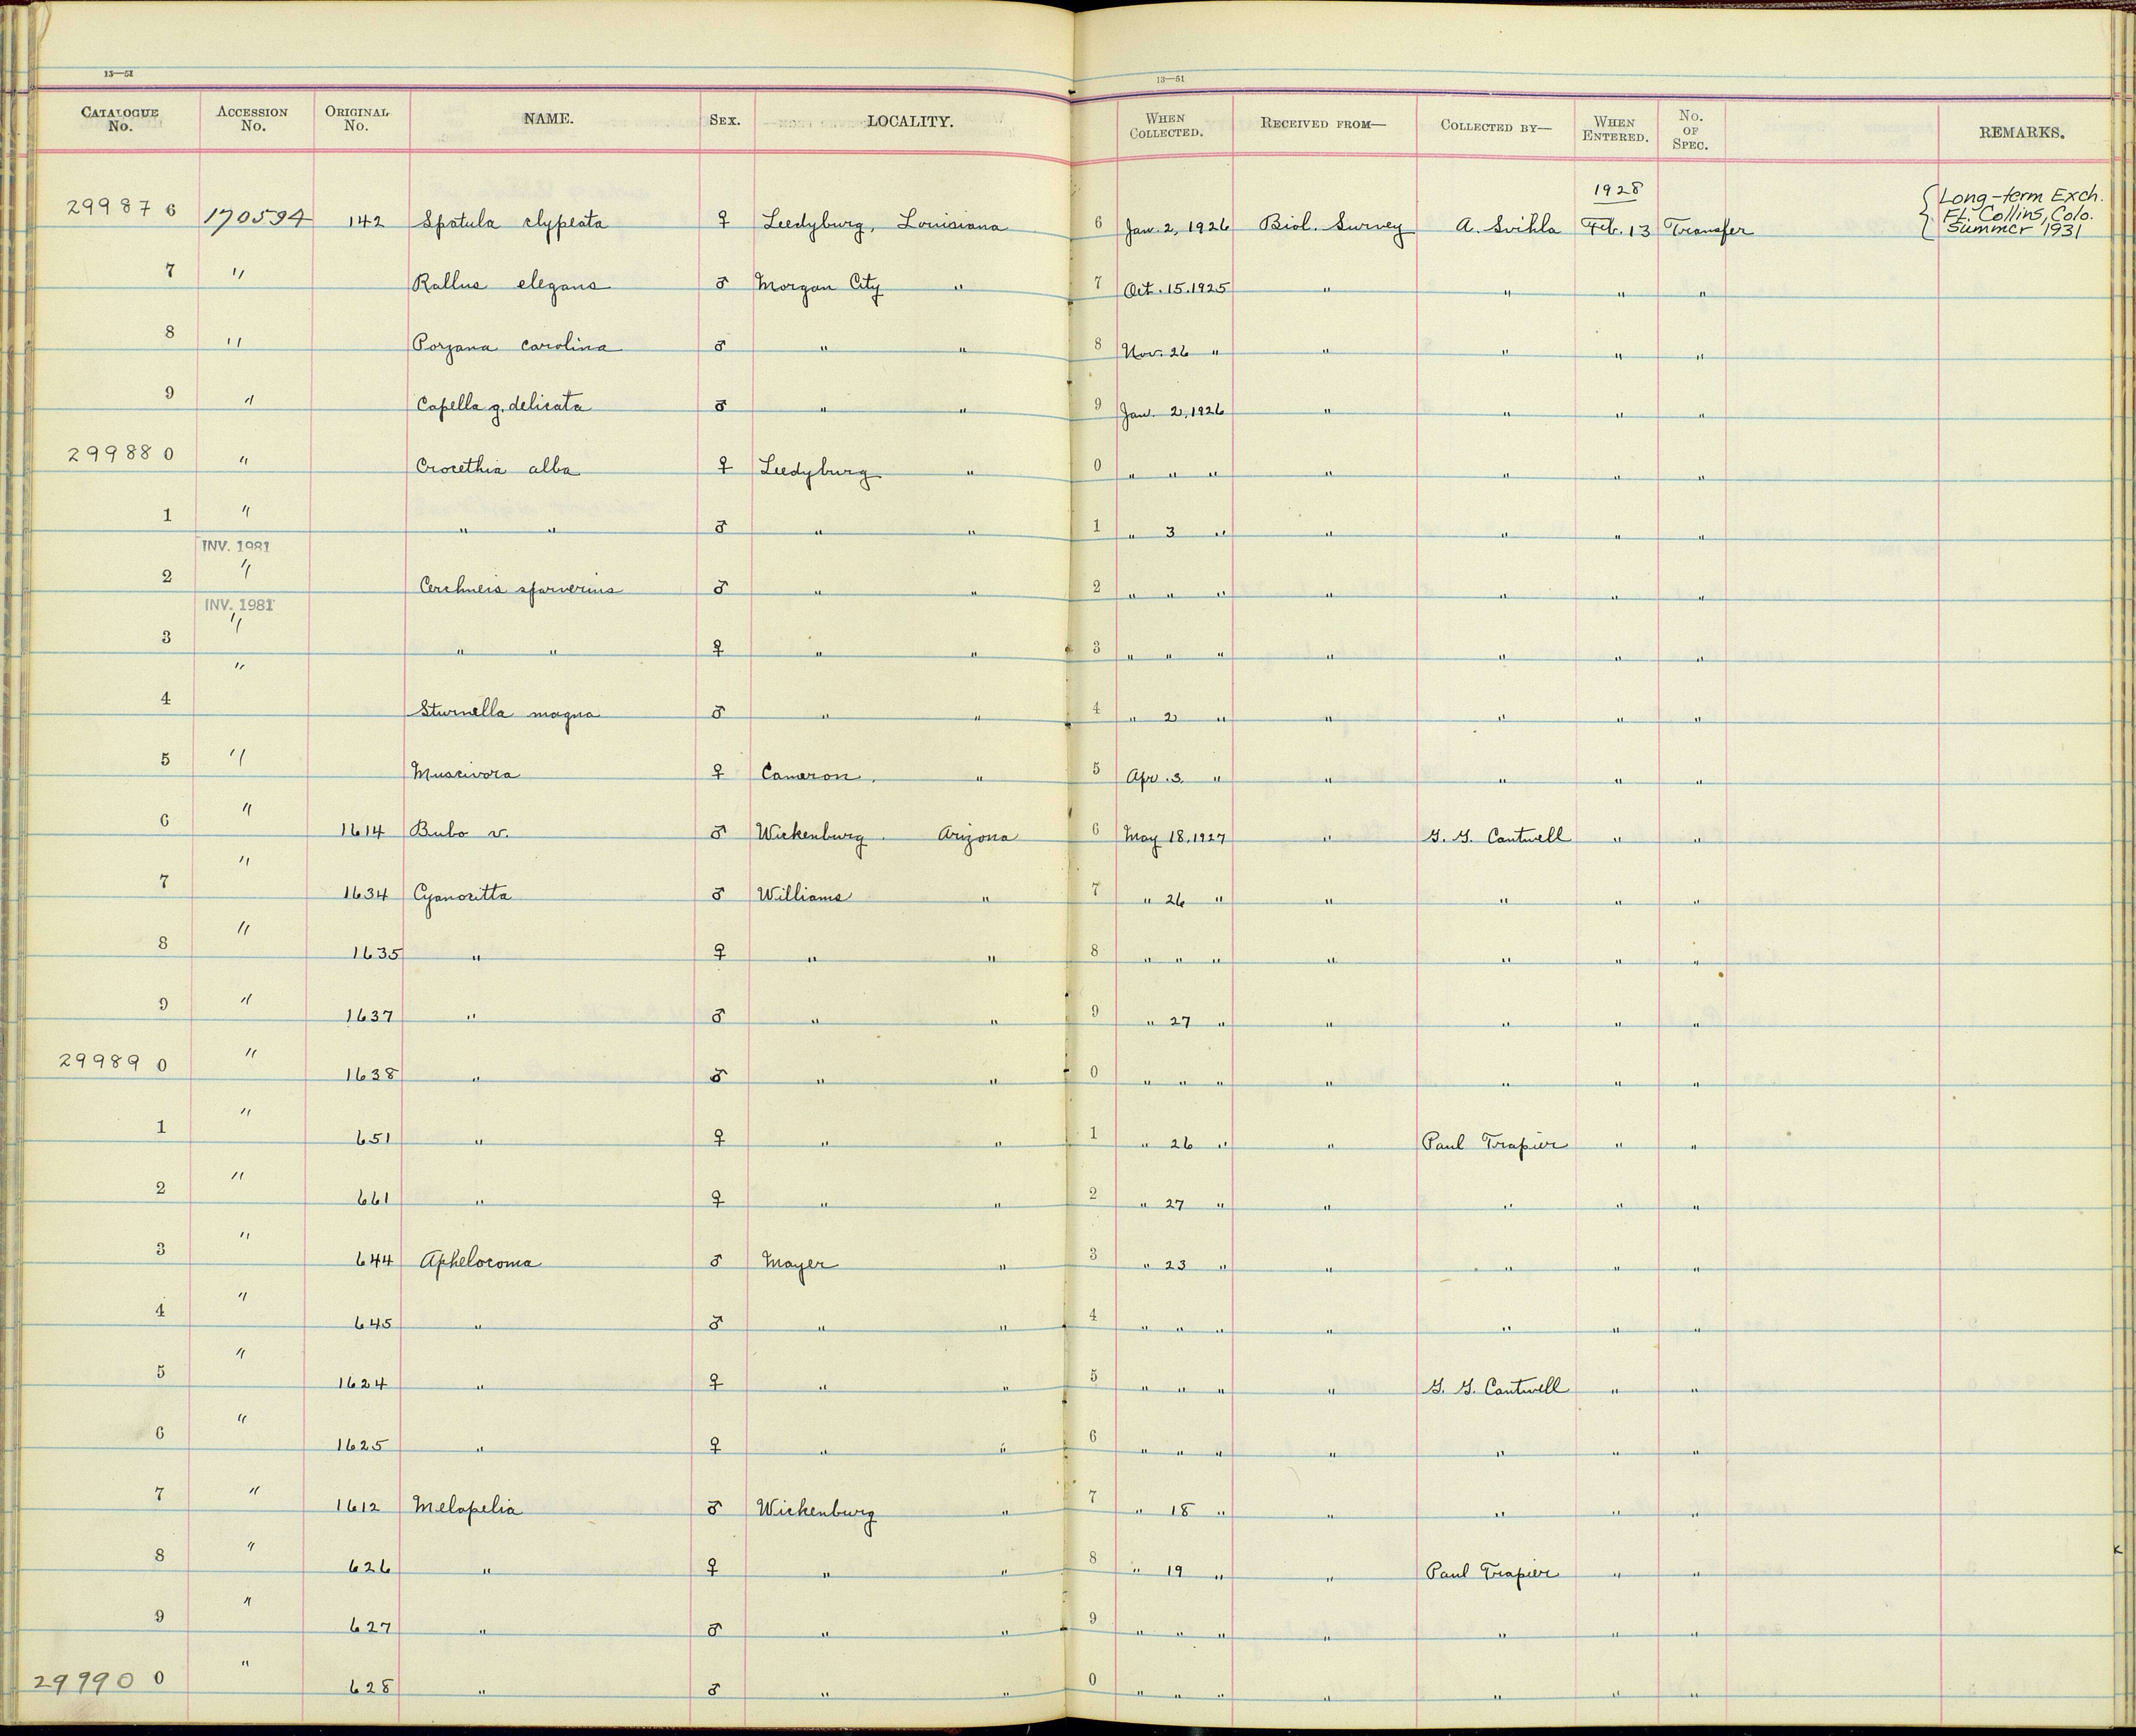 13—51 13—51
CATALOGUE No. ACCESSION No. ORIGINAL No. NAME. SEX. LOCALITY. WHEN COLLECTED. RECEIVED FROM— COLLECTED BY— WHEN ENTERED. No. OF SPEC. REMARKS.
299876 170594 142 Spatula clypeata ♀ Leedyburg, Louisiana 6 Jan. 2, 1926 Biol. Survey A. Svihla 1928 Feb. 13 Transfer { Long-term Exch. Ft. Collins, Colo. Summer 1931
7 " Rallus elegans ♂ Morgan City " 7 Oct. 15. 1925 " " " "
8 " Porzana carolina ♂ " " 8 Nov. 26 " " " " "
9 " Capella g. delicata ♂ " " 9 Jan. 2, 1926 " " " "
299880 " Crocethia alba ♀ Leedyburg " 0 " " " " " " "
1 " " " ♂ " " 1 " 3 " " " " "
INV. 1981
2 " Cerchneis sparverius ♂ " " 2 " " " " " " "
INV. 1981
3 " " " ♀ " " 3 " " " " " " "
4 " Sturnella magna ♂ " " 4 " 2 " " " " "
5 " Muscivora ♀ Cameron, " 5 Apr. 3. " " " " "
6 " 1614 Bubo v. ♂ Wickenburg Arizona 6 May 18, 1927 " G. G. Cantwell " "
7 " 1634 Cyanocitta ♂ Williams " 7 " 26 " " " " "
8 " 1635 " ♀ " " 8 " " " " " " "
9 " 1637 " ♂ " " 9 " 27 " " " " "
299890 " 1638 " ♂ " " 0 " " " " " " "
1 " 651 " ♀ " " 1 " 26 " " Paul Trapier " "
2 " 661 " ♀ " " 2 " 27 " " " " "
3 " 644 Aphelocoma ♂ Mayer " 3 " 23 " " " " "
4 " 645 " ♂ " " 4 " " " " " " "
5 " 1624 " ♀ " " 5 " " " " G. G. Cantwell " "
6 " 1625 " ♀ " " 6 " " " " " " "
7 " 1612 Melopelia ♂ Wickenburg " 7 " 18 " " " " "
8 " 626 " ♀ " " 8 " 19 " " Paul Trapier " "
9 " 627 " ♂ " " 9 " " " " " " "
299900 " 628 " ♂ " " 0 " " " " " " "